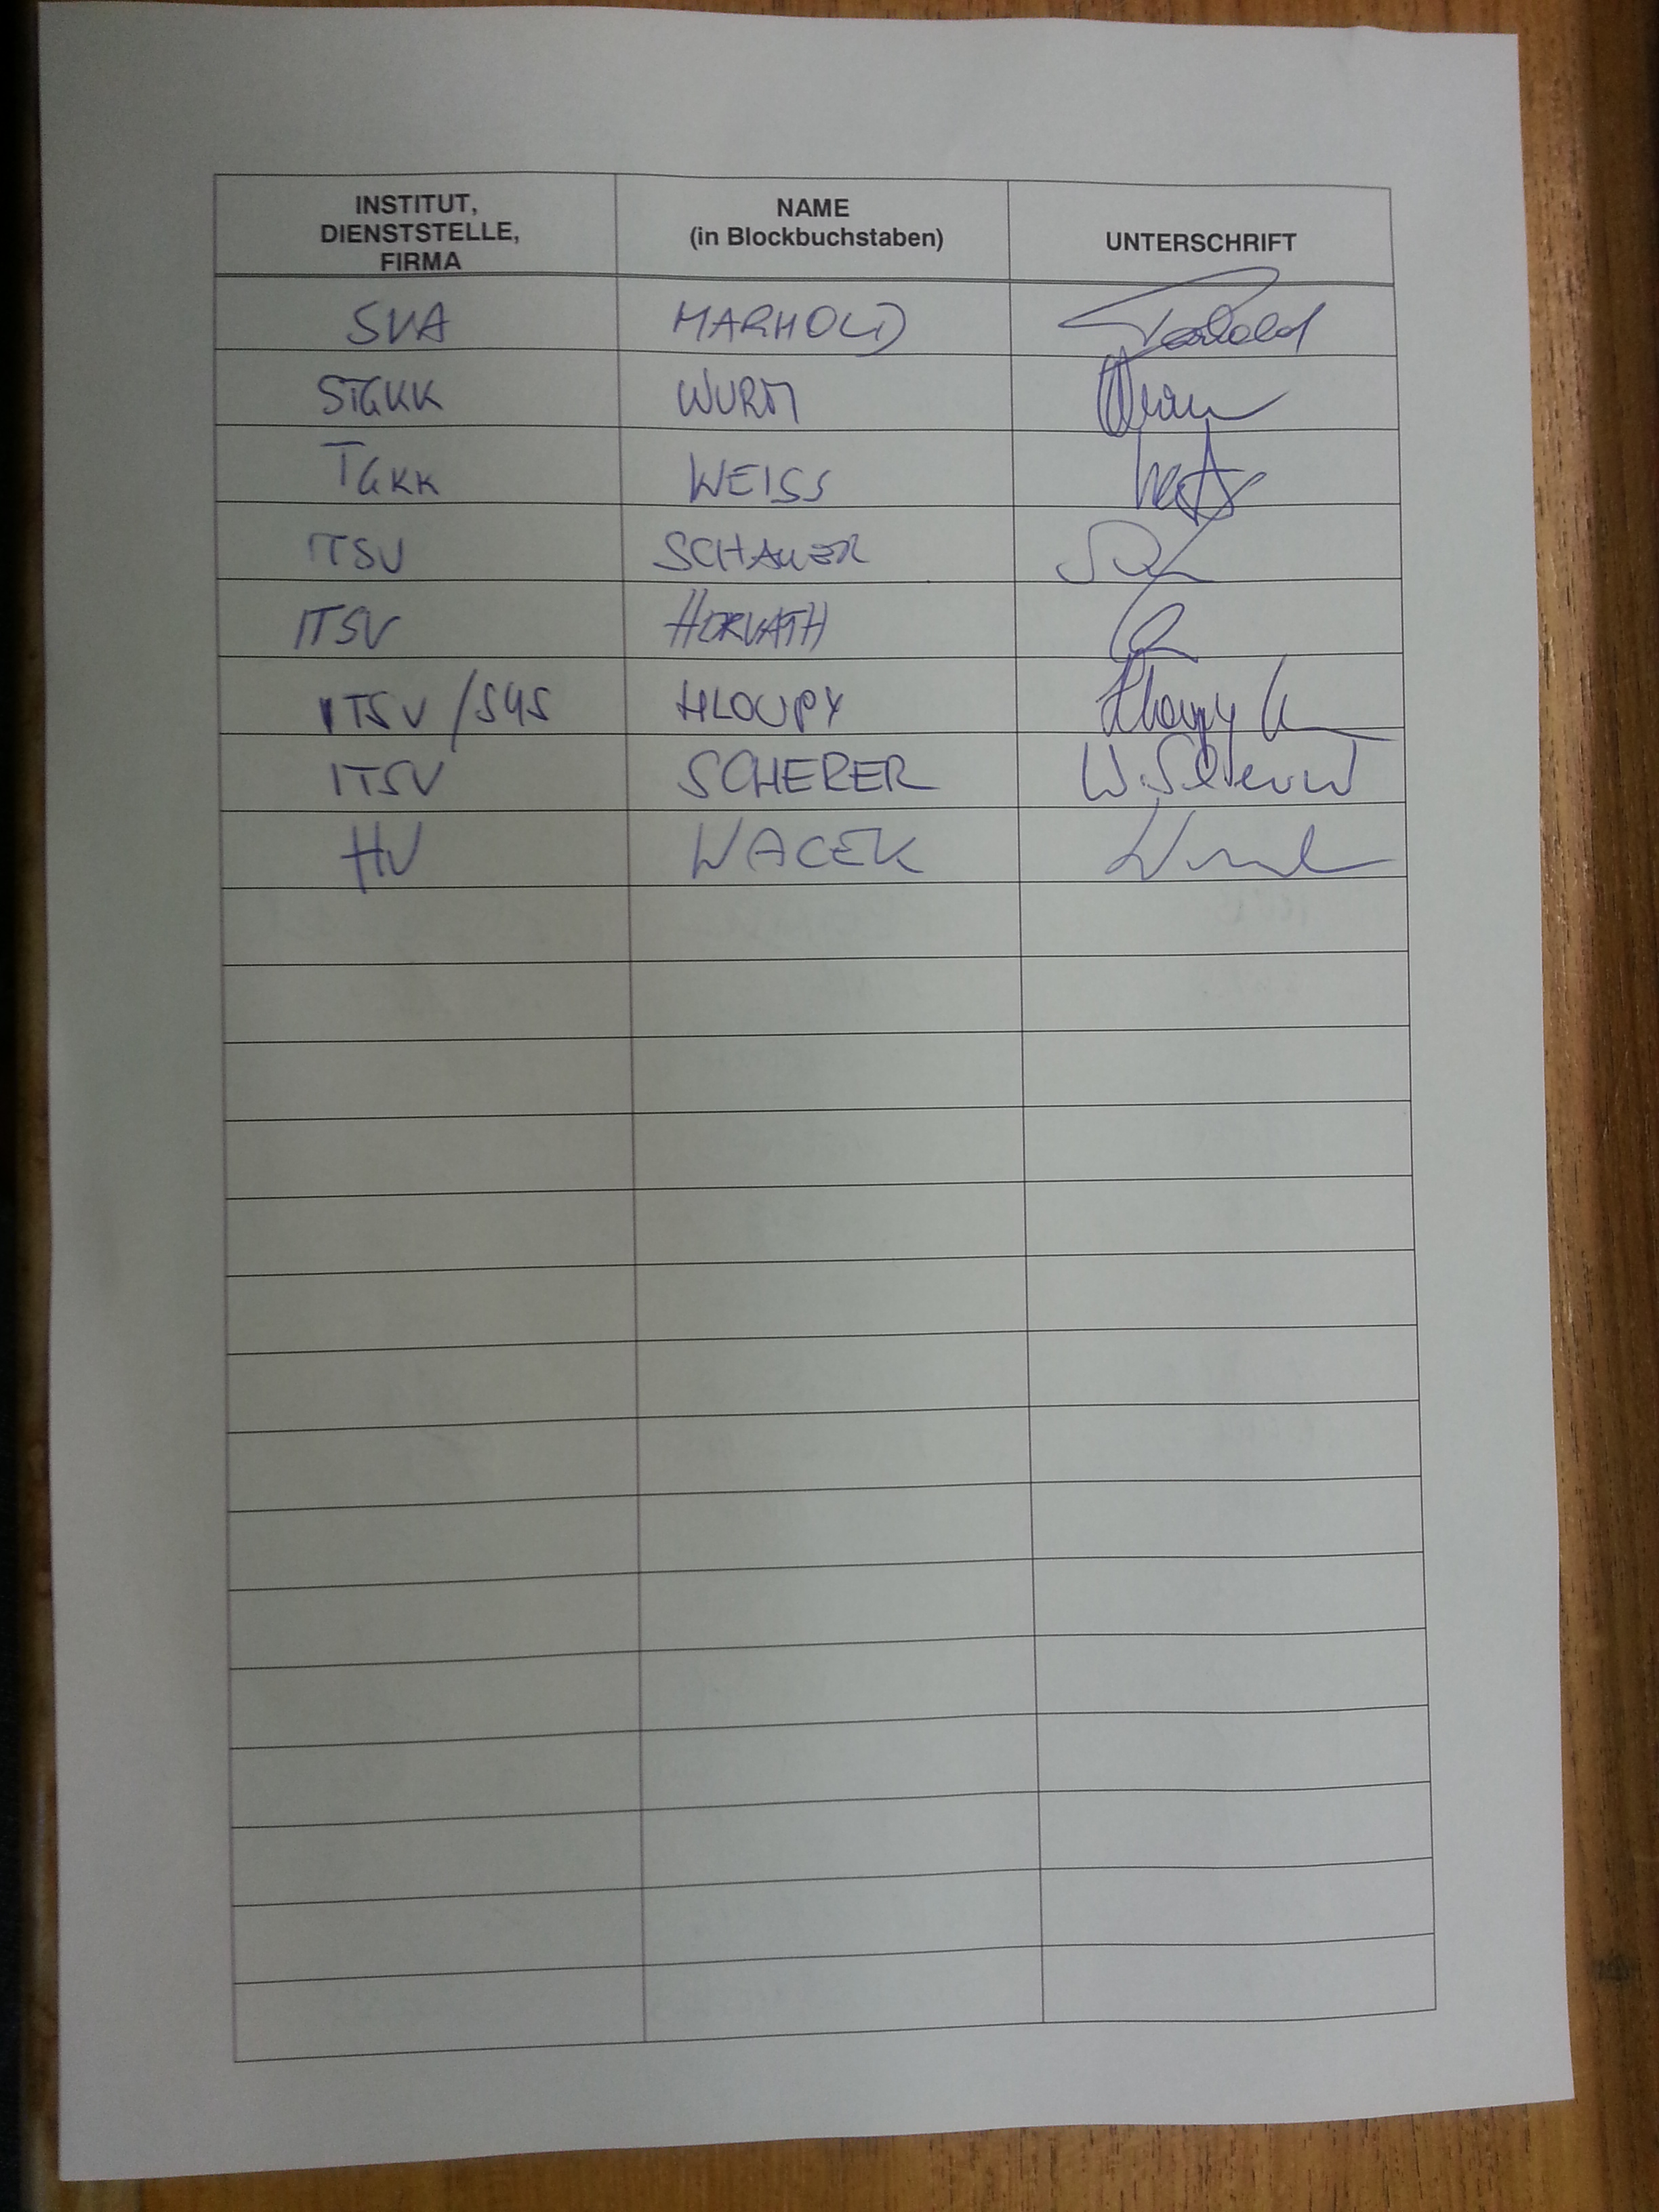 INSTITUT,
DIENSTSTELLE,
FIRMA
NAME
(in Blockbuchstaben)
UNTERSCHRIFT
SVA MARHOLD
STGKK WURM
TGKK WEISS
ITSV SCHAUER
ITSV HORVATH
ITSV/SYS HLOUPY Hloupy
ITSV SCHERER W. Scherer
HV WACEK